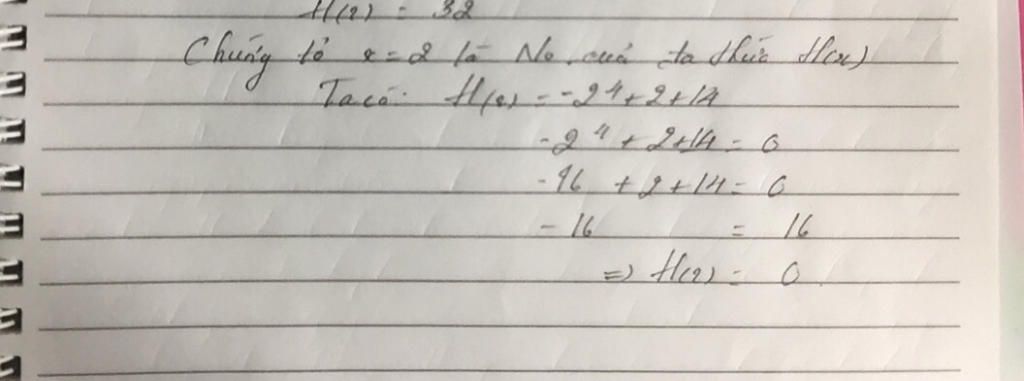 H(2) = 32
Chứng tỏ x = 2 là No. của đa thức H(x)
Ta có: H(2) = -2⁴ + 2 + 14
-2⁴ + 2 + 14 = 0
-16 + 2 + 14 = 0
- 16 = 16
=> H(2) = 0